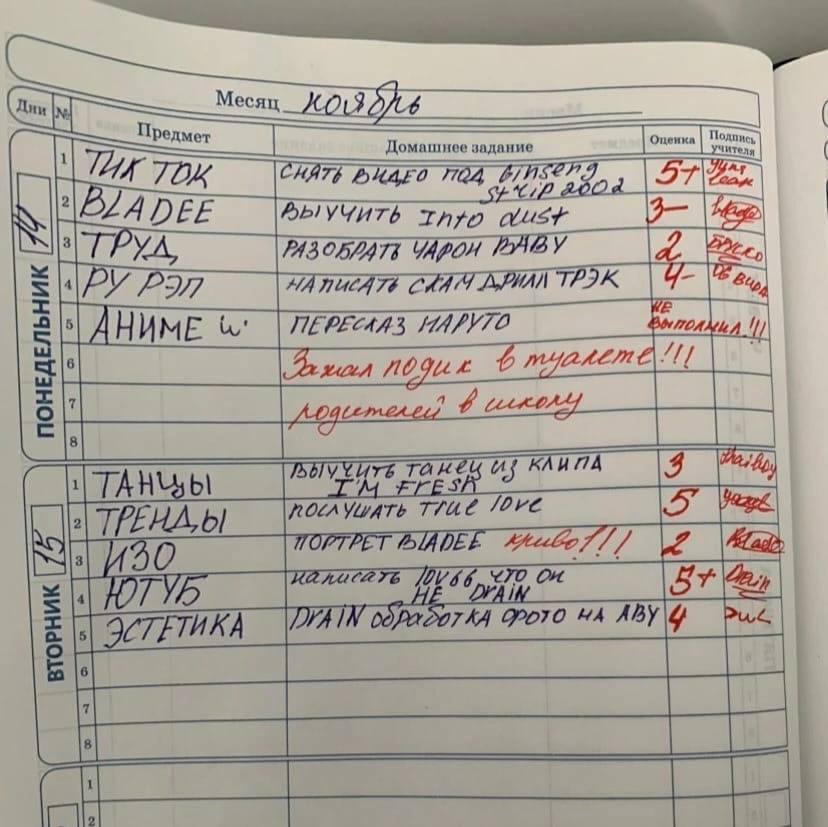 Месяц ноябрь
Дни № Предмет Домашнее задание Оценка Подпись учителя
ПОНЕДЕЛЬНИК 14
1 ТИК ТОК СНЯТЬ ВИДЕО ПОД Ginseng Strip 2002 5+ yung lean
2 BLADEE ВЫУЧИТЬ Into dust 3- bladee
3 ТРУД РАЗОБРАТЬ ЧАРОН BABY 2
4 РУ РЭП НАПИСАТЬ СКАМ ДРИЛЛ ТРЭК 4-
5 АНИМЕ ПЕРЕСКАЗ НАРУТО НЕ ВЫПОЛНИЛ!!!
6 Зажал подик в туалете!!!
7 родителей в школу
8
ВТОРНИК 15
1 ТАНЦЫ ВЫУЧИТЬ танец из КЛИПА I'M FRESH 3 thaiboy
2 ТРЕНДЫ ПОСЛУШАТЬ true love 5
3 ИЗО ПОРТРЕТ BLADEE криво!!!! 2 Bladee
4 ЮТУБ написать lov66 что он НЕ DRAIN 5+ Drain
5 ЭСТЕТИКА DRAIN обработка фото на АВУ 4
6
7
8
1
2